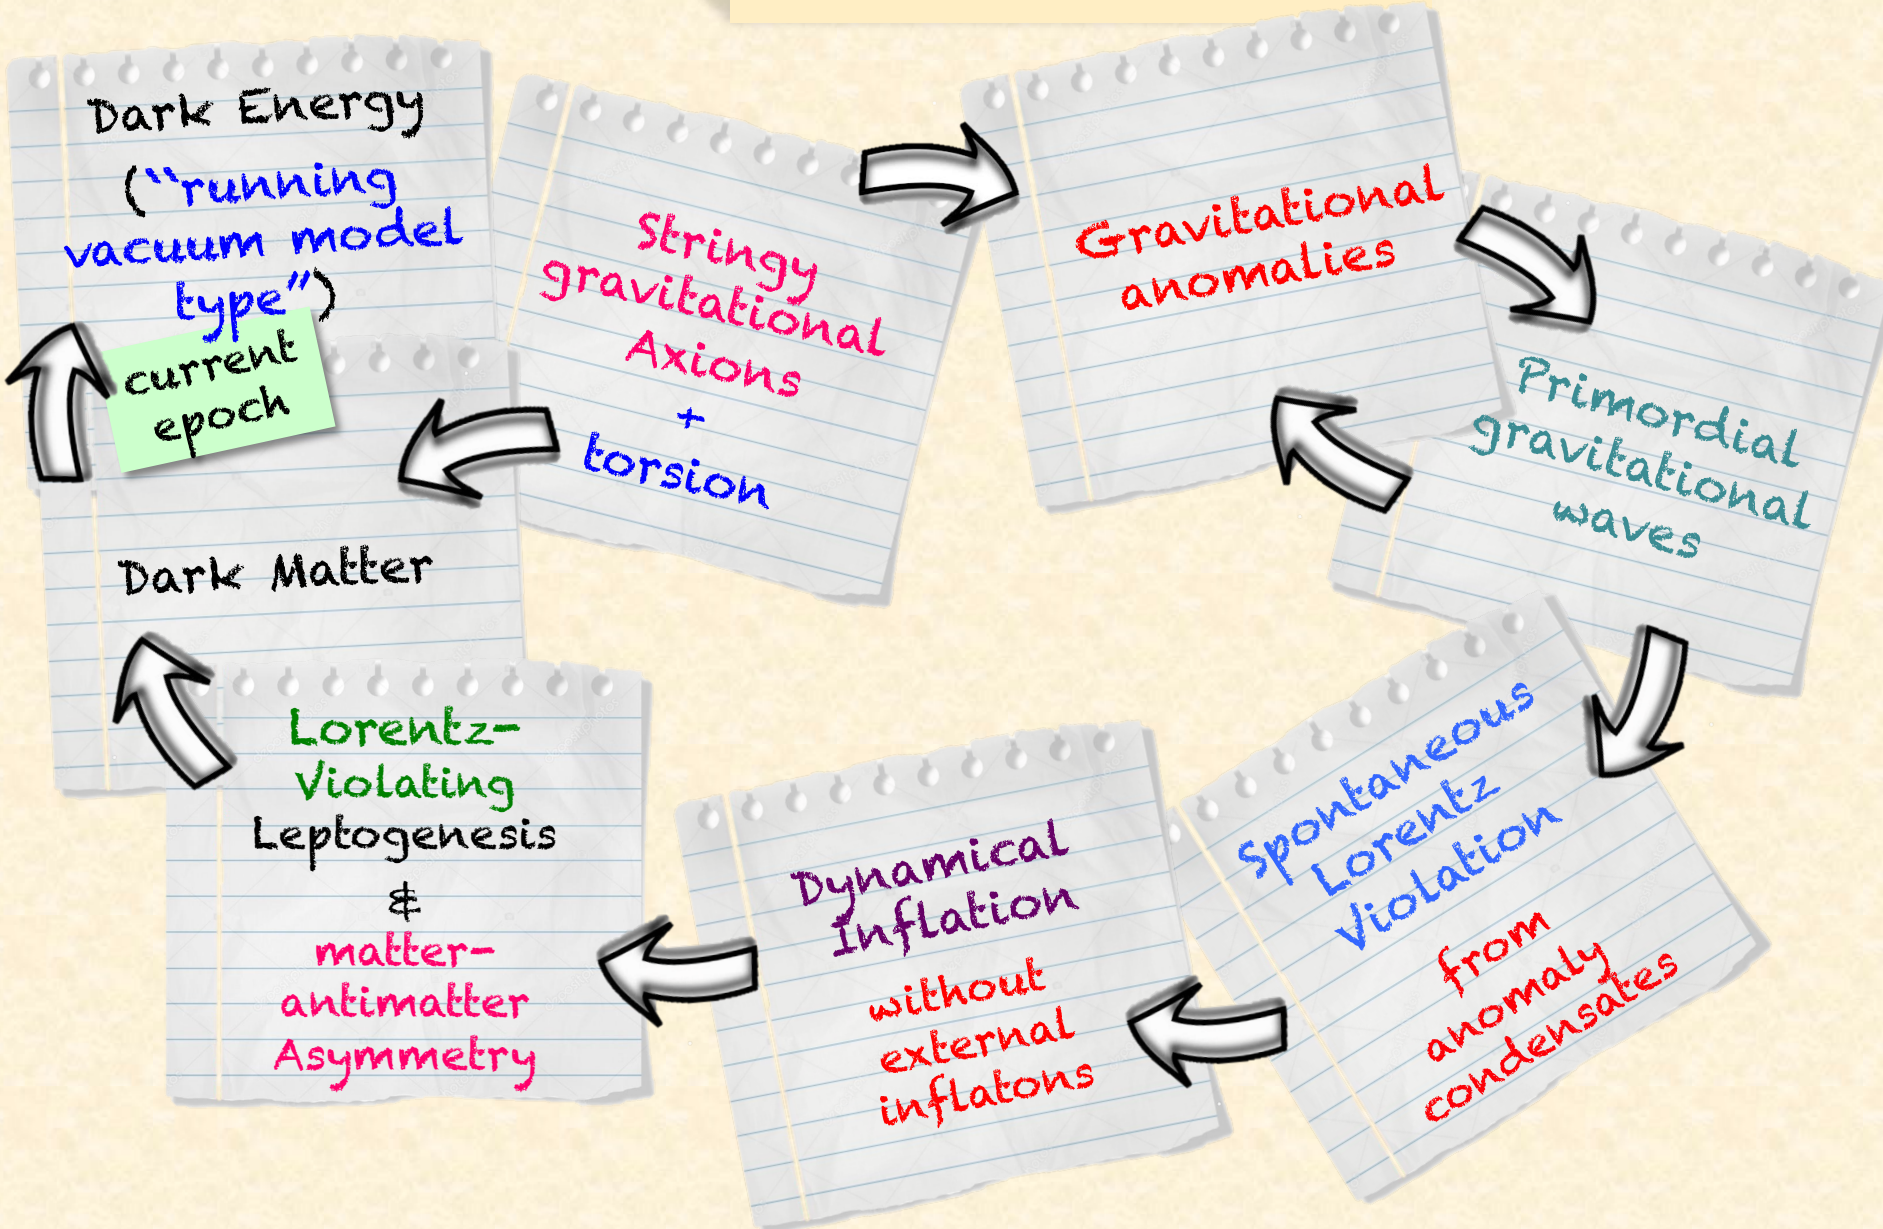 Dark Energy
(“running
vacuum model
type”)
current
epoch
Dark Matter
Stringy
gravitational
Axions
+
torsion
Gravitational
anomalies
Primordial
gravitational
waves
Spontaneous
Lorentz
Violation
from
anomaly
condensates
Dynamical
Inflation
without
external
inflatons
Lorentz-
Violating
Leptogenesis
&
matter-
antimatter
Asymmetry